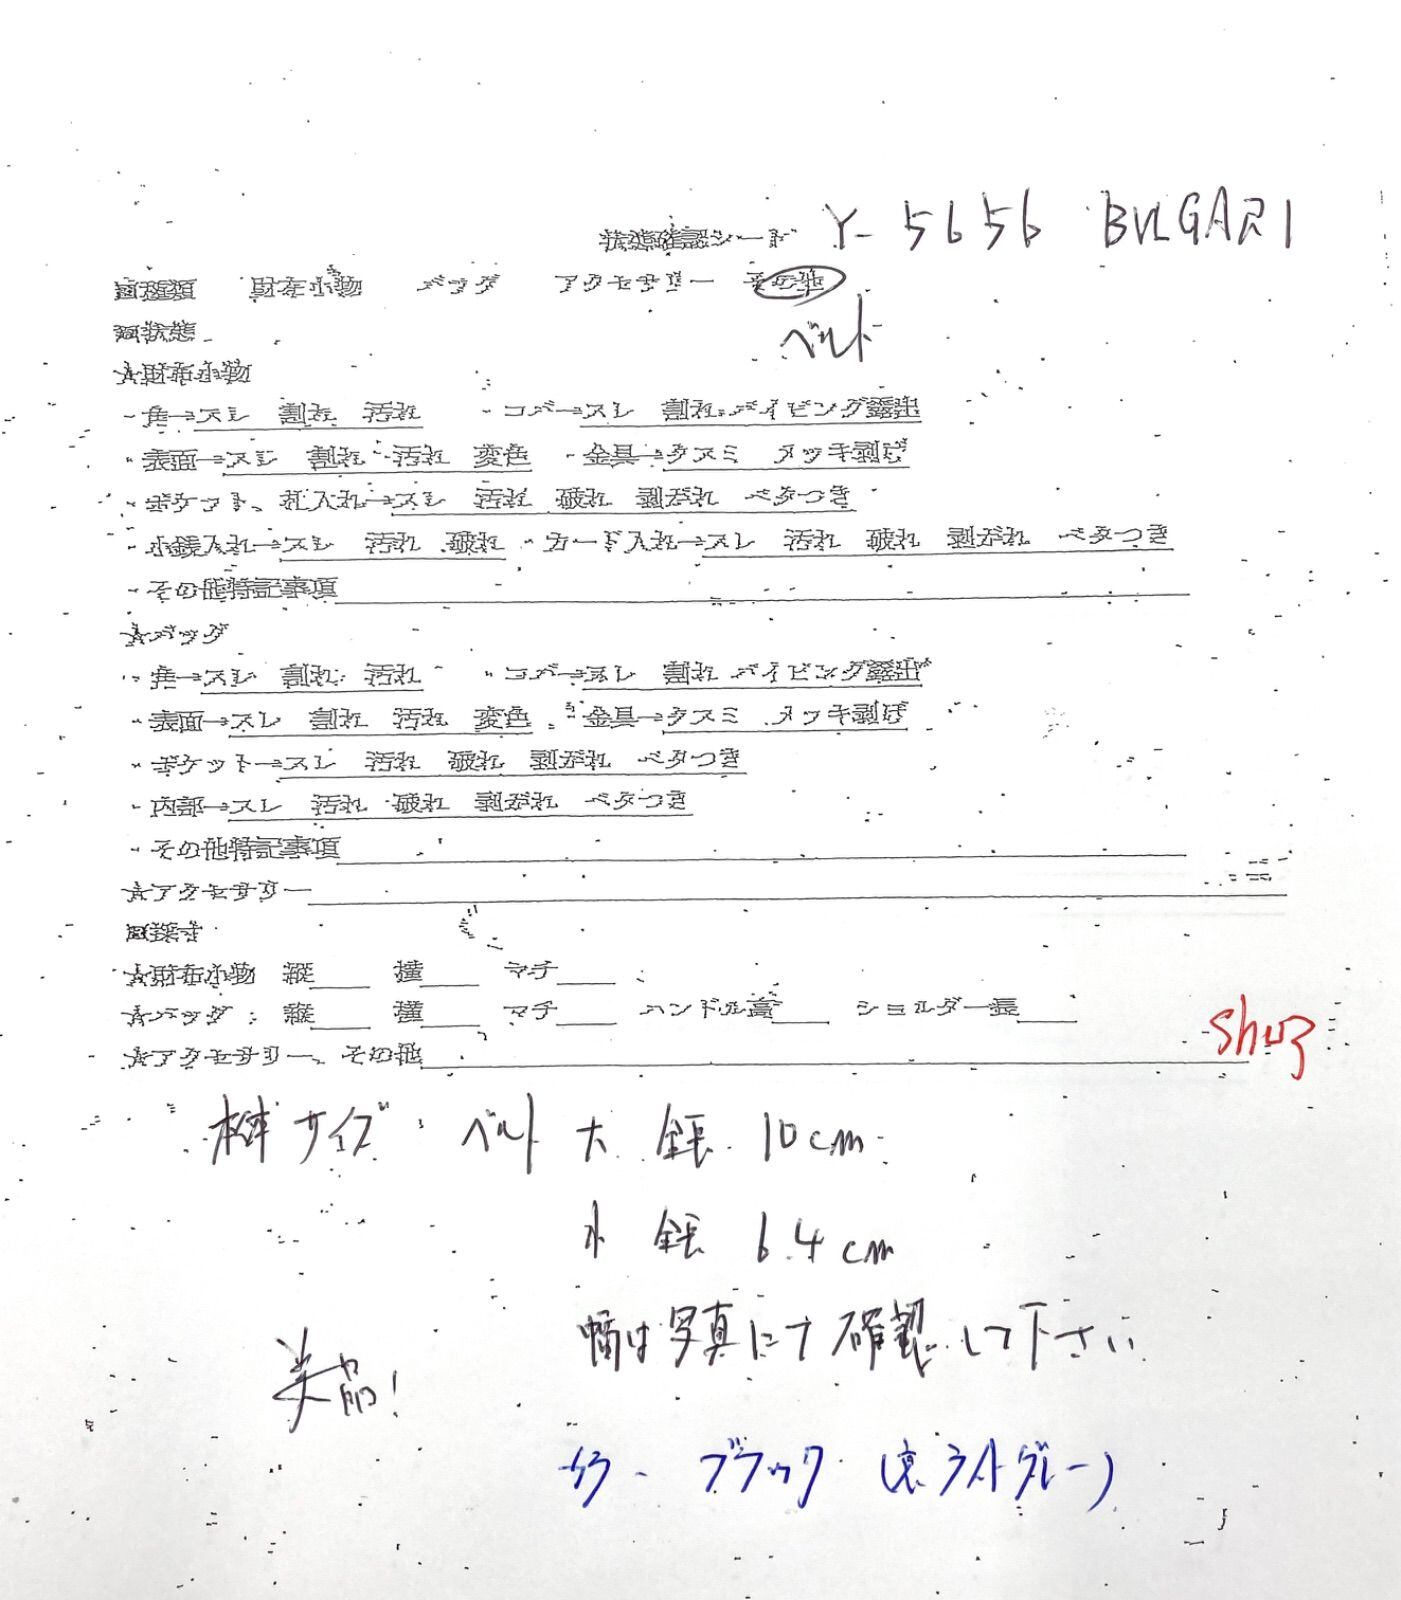 状態確認シート Y-5656 BVLGARI
□種類 財布小物 バッグ アクセサリー その他
ベルト
□状態
★財布小物
・角→スレ 割れ 汚れ ・コバ→スレ 割れ パイピング露出
・表面→スレ 割れ 汚れ 変色 ・金具→クスミ メッキ剥げ
・ポケット、札入れ→スレ 汚れ 破れ 剥がれ ベタつき
・小銭入れ→スレ 汚れ 破れ ・カード入れ→スレ 汚れ 破れ 剥がれ ベタつき
・その他特記事項
★バッグ
・角→スレ 割れ 汚れ ・コバ→スレ 割れ パイピング露出
・表面→スレ 割れ 汚れ 変色 ・金具→クスミ メッキ剥げ
・ポケット→スレ 汚れ 破れ 剥がれ ベタつき
・内部→スレ 汚れ 破れ 剥がれ ベタつき
・その他特記事項
★アクセサリー
□採寸
★財布小物 縦 横 マチ
★バッグ 縦 横 マチ ハンドル高 ショルダー長
★アクセサリー、その他
サイズ ベルト 大 全長 10cm
小 全長 6.4cm
幅は写真にて確認して下さい
美品!
カラー ブラック (裏ライトグレー)